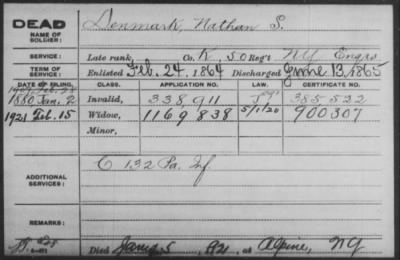 DEAD Denmark, Nathan S.
NAME OF SOLDIER:
SERVICE: Late rank Co. K, 50 Reg't NY Engrs
TERM OF SERVICE: Enlisted Feb. 24, 1864 Discharged June 13, 1865
DATE OF FILING. CLASS. APPLICATION NO. LAW. CERTIFICATE NO.
1880 Jan. 2 Invalid, 338,911 385522
1921 Feb. 15 Widow, 1169838 5/1/20 900307
Minor,
ADDITIONAL SERVICES: C 132 Pa. Inf
REMARKS:
Died Jany 5 1921 at Alpine, NY